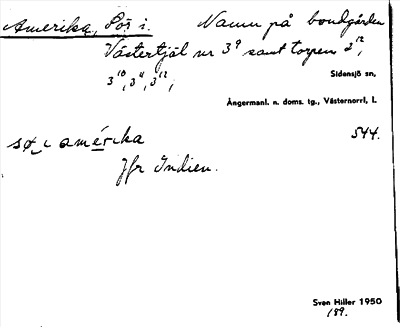 Amerika, Sör i. Namn på bondgården
Västertjäl nr 3⁹ samt torpen 2¹²,
3¹⁰, 3¹¹, 3¹²,
Sidensjö sn,
Ångermanl. n. doms. tg., Västernorrl. l.
sø̱ i amérika 544.
Jfr Indien.
Sven Hiller 1950
189.